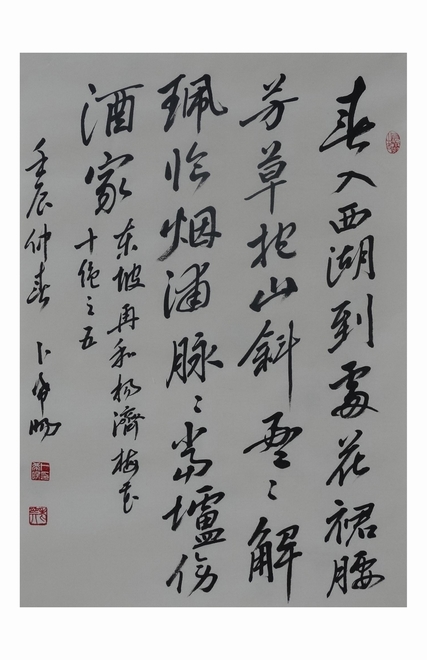 春入西湖到處花裙腰
芳草抱山斜盈〻解
珮临烟浦脉〻當壚傍
酒家
东坡再和杨濟梅花
十绝之五
壬辰仲春 卜希旸